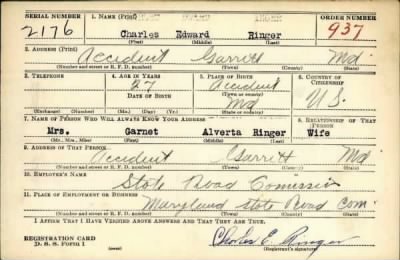 SERIAL NUMBER 1. NAME (Print) ORDER NUMBER
2176 Charles Edward Ringer 937
(First) (Middle) (Last)
2. ADDRESS (Print)
Accident Garrett Md.
(Number and street or R. F. D. number) (Town) (County) (State)
3. TELEPHONE 4. AGE IN YEARS 5. PLACE OF BIRTH 6. COUNTRY OF CITIZENSHIP
27 Accident
DATE OF BIRTH (Town or county)
Md U.S.
(Exchange) (Number) (Mo.) (Day) (Yr.) (State or country)
7. NAME OF PERSON WHO WILL ALWAYS KNOW YOUR ADDRESS 8. RELATIONSHIP OF THAT PERSON
Mrs. Garnet Alverta Ringer Wife
(Mr., Mrs., Miss) (First) (Middle) (Last)
9. ADDRESS OF THAT PERSON
Accident Garrett Md.
(Number and street or R. F. D. number) (Town) (County) (State)
10. EMPLOYER'S NAME
State Road Comession
11. PLACE OF EMPLOYMENT OR BUSINESS
Maryland State Road Com.
(Number and street or R. F. D. number) (Town) (County) (State)
I AFFIRM THAT I HAVE VERIFIED ABOVE ANSWERS AND THAT THEY ARE TRUE.
REGISTRATION CARD
D. S. S. Form 1 Charles E. Ringer
(Registrant's signature)